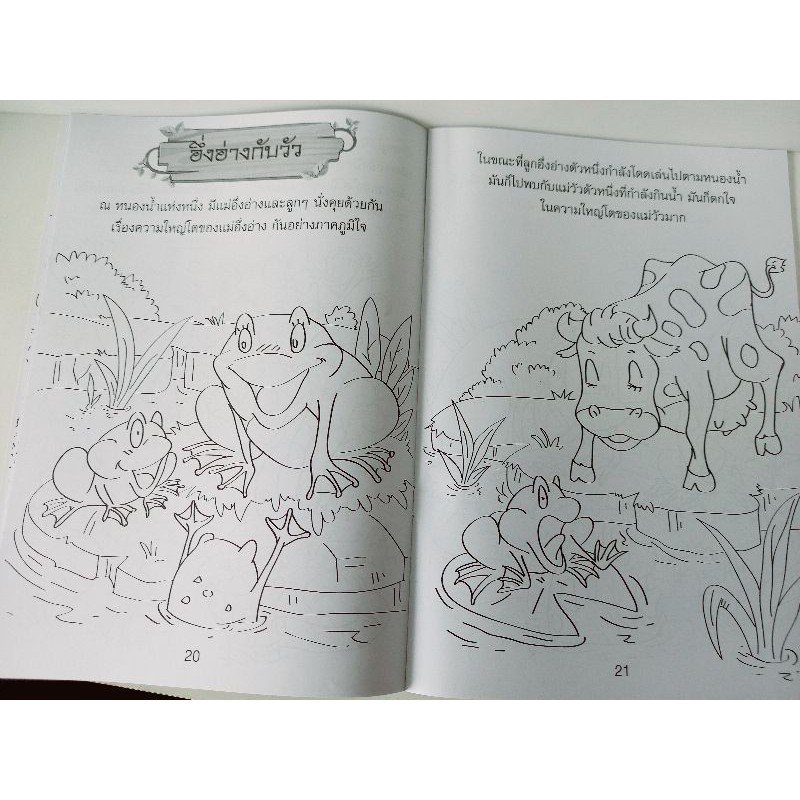 อึ่งอ่างกับวัว
ณ หนองน้ำแห่งหนึ่ง มีแม่อึ่งอ่างและลูกๆ นั่งคุยด้วยกัน
เรื่องความใหญ่โตของแม่อึ่งอ่าง กันอย่างภาคภูมิใจ
20
ในขณะที่ลูกอึ่งอ่างตัวหนึ่งกำลังโดดเล่นไปตามหนองน้ำ
มันก็ไปพบกับแม่วัวตัวหนึ่งที่กำลังกินน้ำ มันก็ตกใจ
ในความใหญ่โตของแม่วัวมาก
21